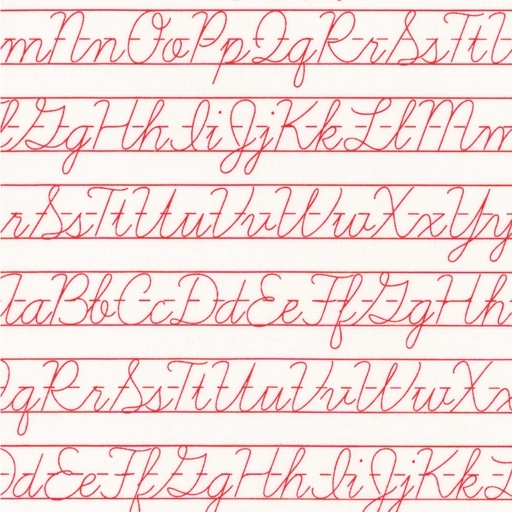 mNnOoPpQqRrSsTtU
fGgHhIiJjKkLlMm
rSsTtUuVvWwXxYy
AaBbCcDdEeFfGgHh
QqRrSsTtUuVvWwXx
DdEeFfGgHhIiJjKkL